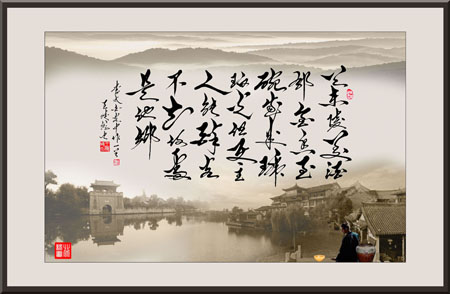 兰陵美酒
郁金香玉
碗盛来琥
珀光但使主
人能醉客
不知何处
是他乡